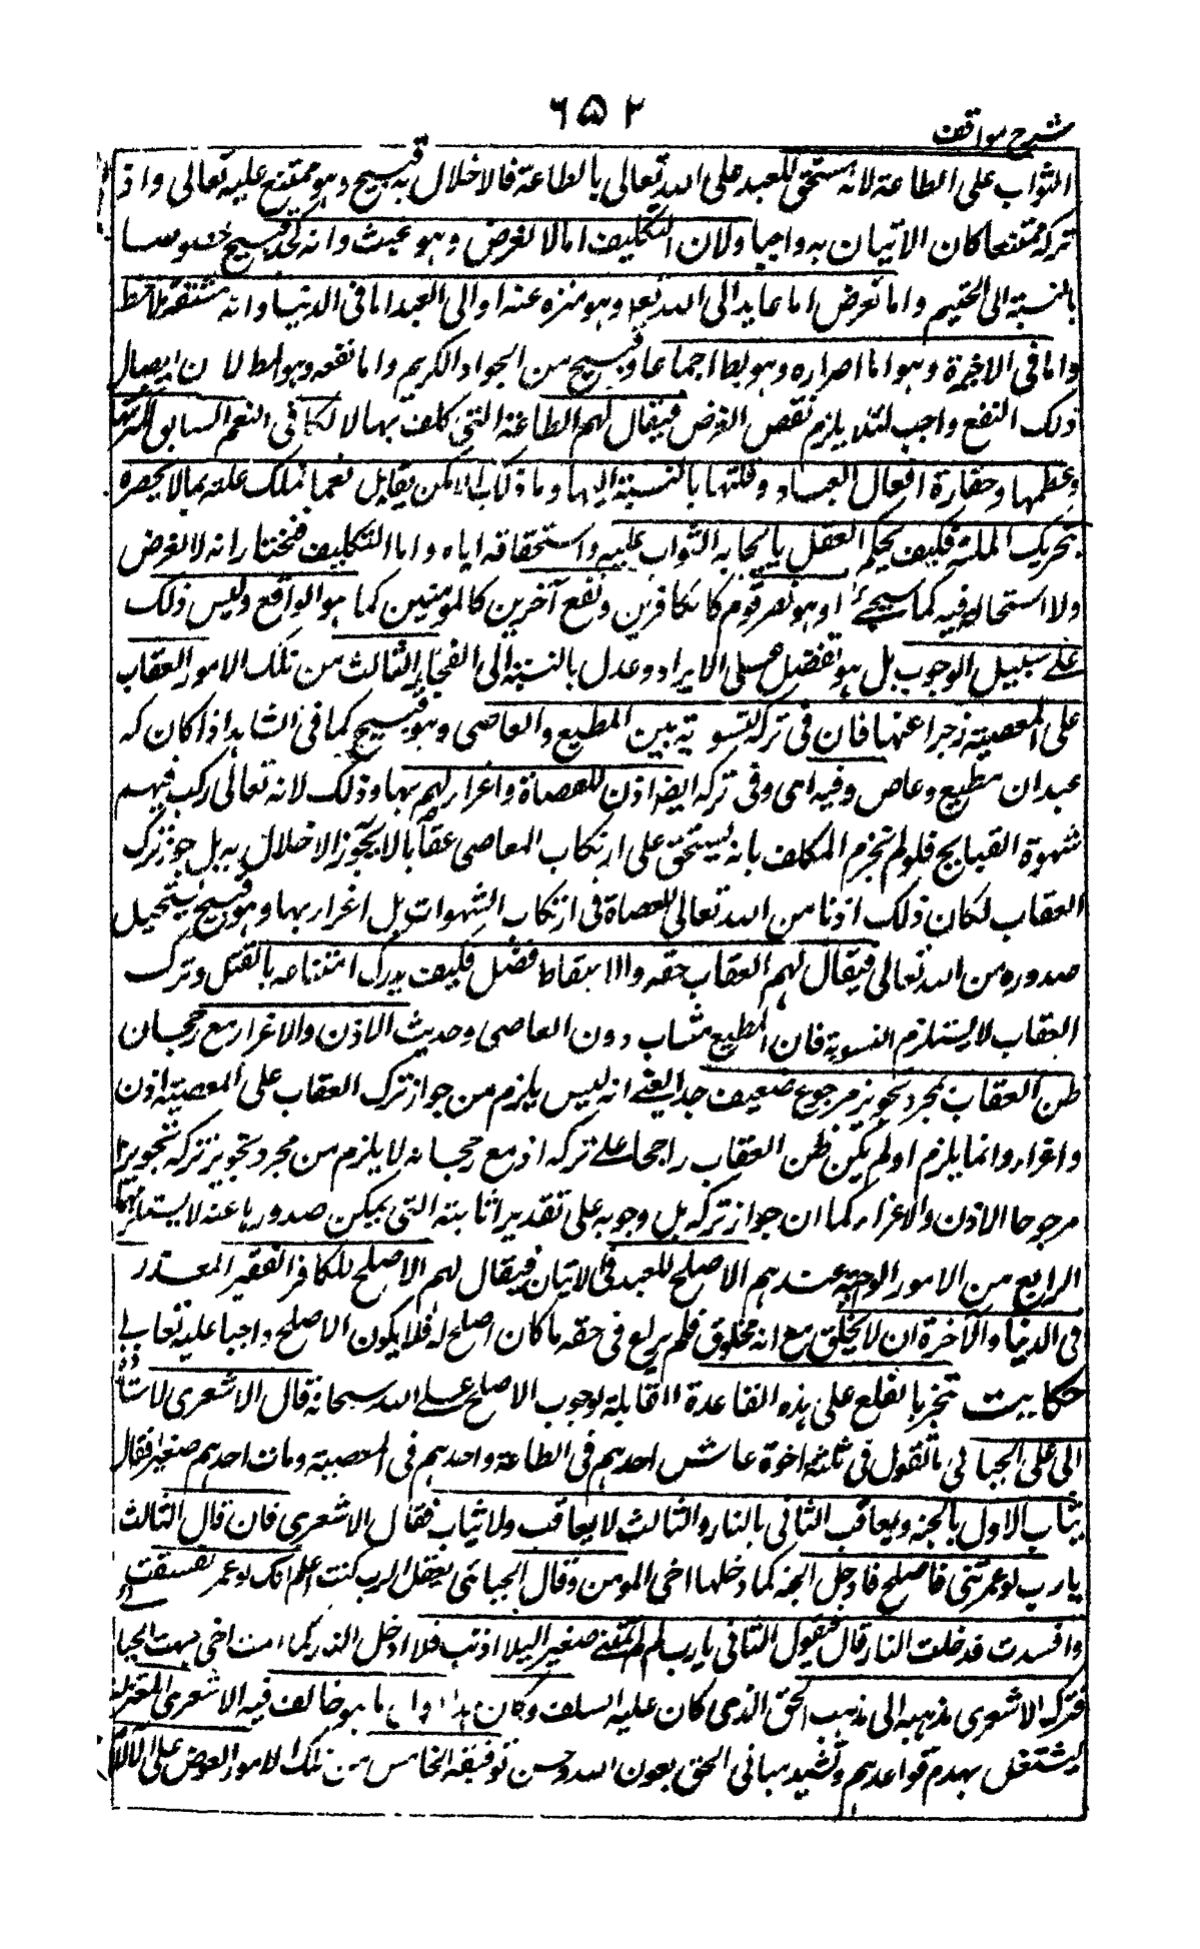 ۶۵۲
شرح مواقف
الثواب على الطاعة لانه مستحق للعبد على الله تعالى بالطاعة فالاخلال به قبيح وهو ممتنع عليه تعالى واذ
تركه ممتنعا كان الاتيان به واجبا ولان التكليف اما لا لغرض وهو عبث وانه لجد قبيح خصوصا
بالنسبة الى الحكيم واما لغرض اما عايد الى الله تعالى وهو منزه عنه او الى العبد اما فى الدنيا وانه مشقة بلا حظ
واما فى الاخرة وهو اما اضراره وهو بط اجماعا وقبيح من الجواد الكريم واما نفعه وهو المط لان ايصال
ذلك النفع واجب لئلا يلزم نقض الغرض فيقال لهم الطاعة التى كلف بها لا تكافى النعم السابق لكثرتها
وعظمها وحقارة افعال العباد وقلتها بالنسبة اليها وما ذلك الا كمن يقابل نعما نملك عليه بما لا يحصره
بتحريك انملته فكيف يحكم العقل بايجابه الثواب عليه واستحقاقه اياه واما التكليف فنختار انه لا لغرض
ولا استحالة فيه كما سيجئ او هو لضر قوم كالكافرين ونفع آخرين كالمؤمنين كما هو الواقع وليس ذلك
على سبيل الوجوب بل هو تفضل على الابرار وعدل بالنسبة الى الفجار الثالث من تلك الامور العقاب
على المعصية زجرا عنها فان فى تركه لتسوية بين المطيع والعاصى وهو قبيح كما فى الشاهد اذا كان له
عبدان مطيع وعاص وفيه اى وفى تركه ايضا اذن للعصاة واغراء لهم بها وذلك لانه تعالى ركب فيهم
شهوة القبايح فلو لم نجزم المكلف بانه يستحق على ارتكاب المعاصى عقابا لا يجوز الاخلال به بل جوز ترك
العقاب لكان ذلك اذنا من الله تعالى للعصاة فى ارتكاب الشهوات بل اغراء بها وهو قبيح يستحيل
صدوره من الله تعالى فيقال لهم العقاب حقه والاسقاط فضل فكيف يدرك امتناعه بالعقل وترك
العقاب لا يستلزم التسوية فان المطيع مثاب دون العاصى وحديث الاذن والاغراء مع رجحان
ظن العقاب بمجرد تجويز مرجوع ضعيف جدا يعنے انه ليس يلزم من جواز ترك العقاب على المعصية اذن
واغراء وانما يلزم لو لم يكن ظن العقاب راجحا على تركه اذ مع رجحانه لا يلزم من مجرد تجويز تركه تجويزا
مرجوحا الاذن والاغراء كما ان جواز تركه بل وجوبه على تقدير انابته التى يمكن صدورها عنه لا يستلزمهما
الرابع من الامور الواجبة عندهم الاصلح للعبد فى الاتيان فيقال لهم الاصلح للكافر الفقير المعذر
فى الدنيا والآخرة ان لا يخلق مع انه مخلوق فلم يرع فى حقه ما كان اصلح له فلا يكون الاصلح واجبا عليه تعالى
حكايت تنجز بالقلع على هذه القاعدة القايلة لوجوب الاصلح على الله سبحانه قال الاشعرى لاستاذه
ابى على الجبائى ما تقول فى ثلثة اخوة عاش احدهم فى الطاعة واحدهم فى المعصية ومات احدهم صغيرا فقال
يثاب الاول بالجنة ويعاقب الثانى بالنار والثالث لا يعاقب ولا يثاب فقال الاشعرى فان قال الثالث
يا رب لو عمرتنى فاصلح فادخل الجنة كما دخلها اخى المومن وقال الجبائى يقول الرب كنت اعلم انك لو عمرت لفسقت
وافسدت فدخلت النار قال فيقول الثانى يا رب لم لم تمتنى صغيرا ليلا اذنب فلا ادخل النار كما امت اخى بهت الجبا
فترك الاشعرى مذهبه الى مذهب الحق الذى كان عليه السلف وكان هذا اول ما هو خالف فيه الاشعرى المعتزلة
ليشتغل بهدم قواعدهم وتشييد مبانى الحق بعون الله وحسن توفيقه الخامس من تلك الامور العوض على الآلام